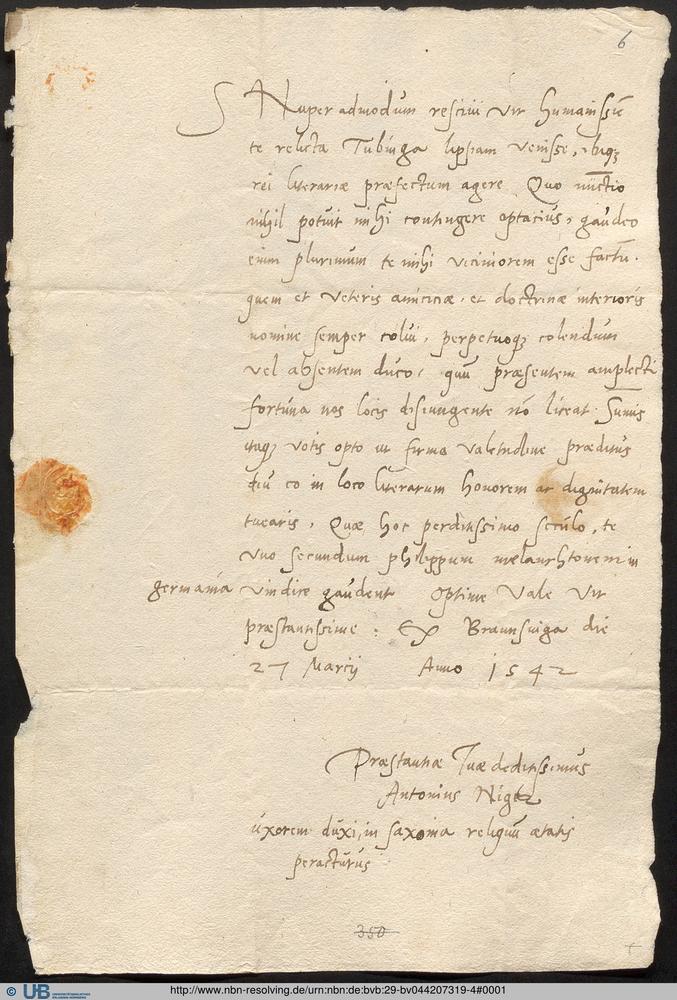 6
S Nuper admodum rescivi vir humanissi͞e
te relicta Tubinga lipsiam venisse, ibiqꝫ
rei literariæ præfectum agere Quo nu͞ctio
nihil potuit mihi contingere optacius, gaudeo
enim plurimum te mihi viciniorem esse factu͞.
quem et veteris amicitiæ, et doctrinæ interioris
nomine semper colui, perpetuoqꝫ colendum
vel absentem duco, quu͞ præsentem amplecti
fortuna nos locis disiungente no͞ liceat. Su͞mis
itaqꝫ votis opto ut firma valetudine præditus
diu eo in loco literarum honorem ac dignitatem
tuearis, Quæ hoc perditissimo seculo, te
uno secundum philippum melanchtonem in
germania vindice gaudent Optime Vale Vir
præstantissime: Ex Braunsuiga die
27 Marcij Anno 1542
Præstantiæ Tuæ deditissimus
Antonius Niger
uxorem duxi, in saxonia reliquu͞ ætatis
peracturus
350
© UB
UNIVERSITÄTSBIBLIOTHEK
ERLANGEN-NÜRNBERG
http://www.nbn-resolving.de/urn:nbn:de:bvb:29-bv044207319-4#0001